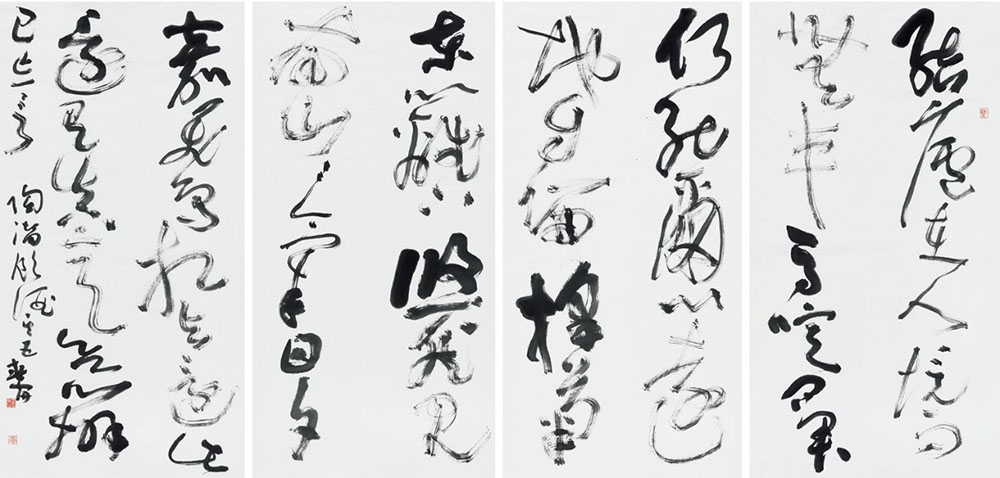 結廬在人境而
無車馬喧問君
何能爾心遠
地自偏採菊
東籬下悠然見
南山山氣日夕
嘉飛鳥相与還此
還有真意欲辨
已忘言 陶潛飲酒其五